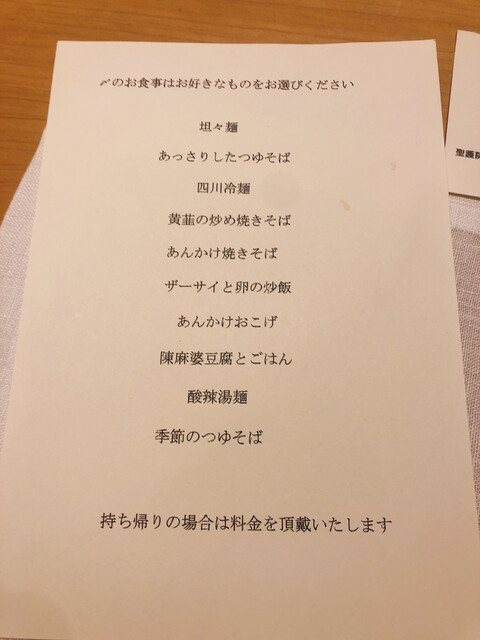 〆のお食事はお好きなものをお選びください
坦々麺
あっさりしたつゆそば
四川冷麺
黄韮の炒め焼きそば
あんかけ焼きそば
ザーサイと卵の炒飯
あんかけおこげ
陳麻婆豆腐とごはん
酸辣湯麺
季節のつゆそば
持ち帰りの場合は料金を頂戴いたします
聖護